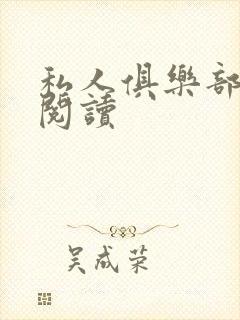 私人俱樂部
閱讀
吴成荣